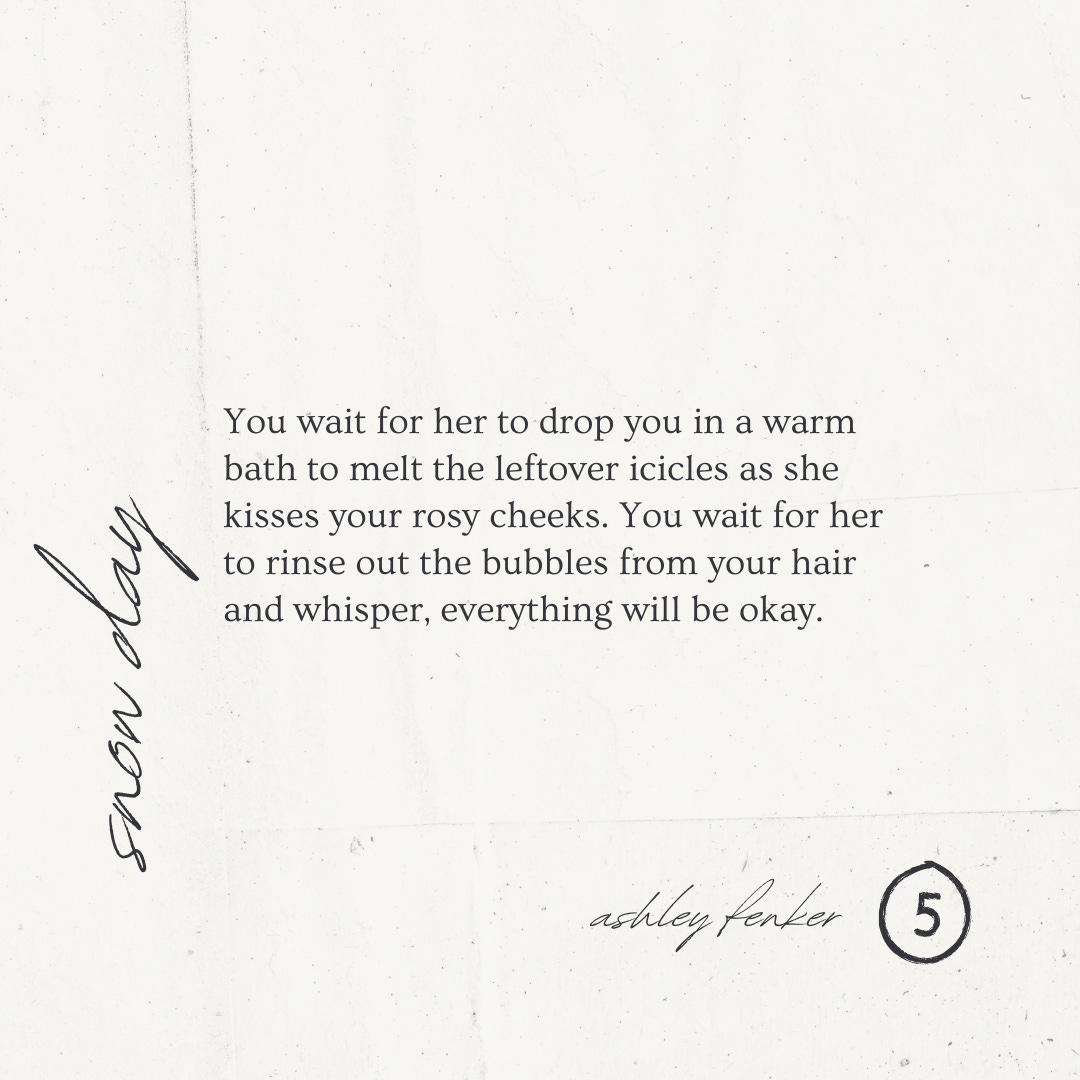 snow day
You wait for her to drop you in a warm
bath to melt the leftover icicles as she
kisses your rosy cheeks. You wait for her
to rinse out the bubbles from your hair
and whisper, everything will be okay.
ashley fenker
5